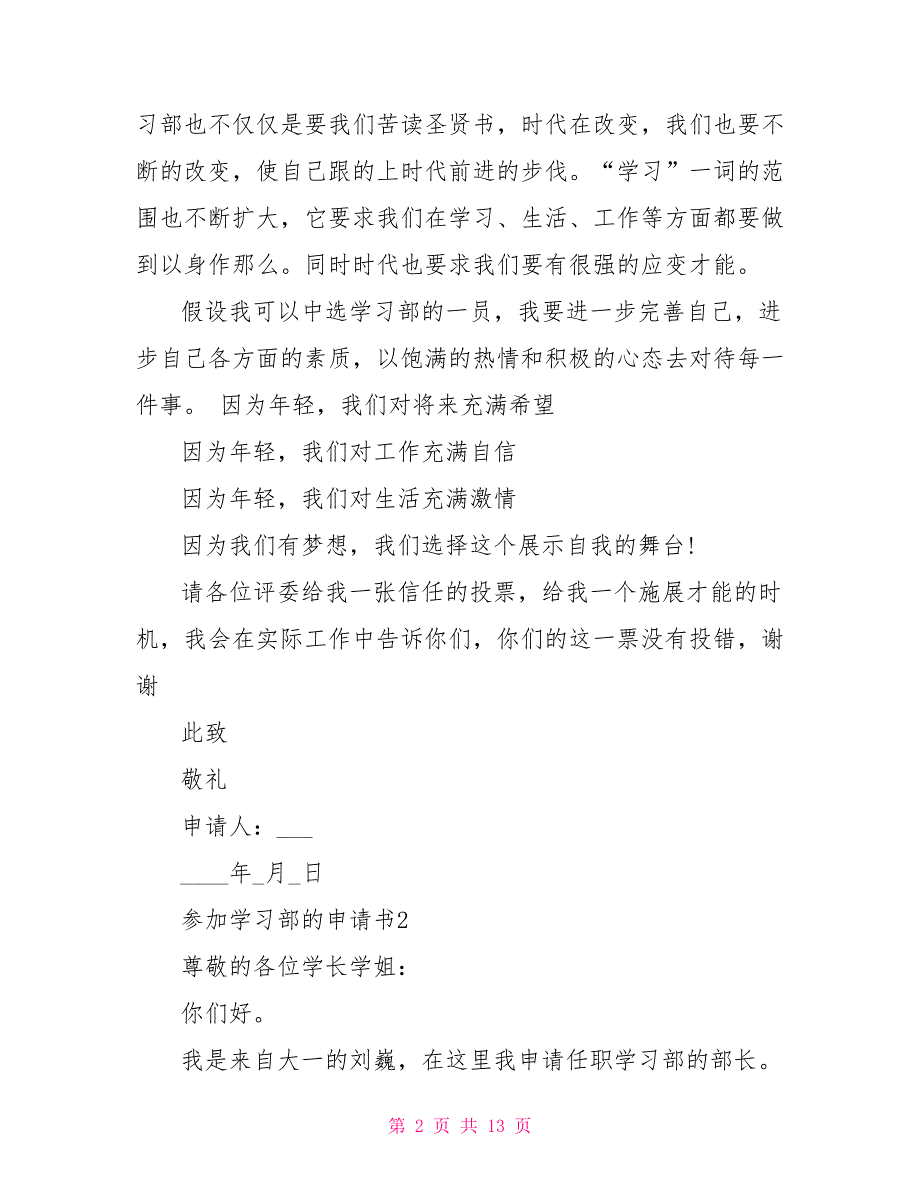 习部也不仅仅是要我们苦读圣贤书，时代在改变，我们也要不
断的改变，使自己跟的上时代前进的步伐。“学习”一词的范
围也不断扩大，它要求我们在学习、生活、工作等方面都要做
到以身作那么。同时时代也要求我们要有很强的应变才能。
假设我可以中选学习部的一员，我要进一步完善自己，进
步自己各方面的素质，以饱满的热情和积极的心态去对待每一
件事。 因为年轻，我们对将来充满希望
因为年轻，我们对工作充满自信
因为年轻，我们对生活充满激情
因为我们有梦想，我们选择这个展示自我的舞台!
请各位评委给我一张信任的投票，给我一个施展才能的时
机，我会在实际工作中告诉你们，你们的这一票没有投错，谢
谢
此致
敬礼
申请人：___
____年_月_日
参加学习部的申请书2
尊敬的各位学长学姐：
你们好。
我是来自大一的刘巍，在这里我申请任职学习部的部长。
第 2 页 共 13 页